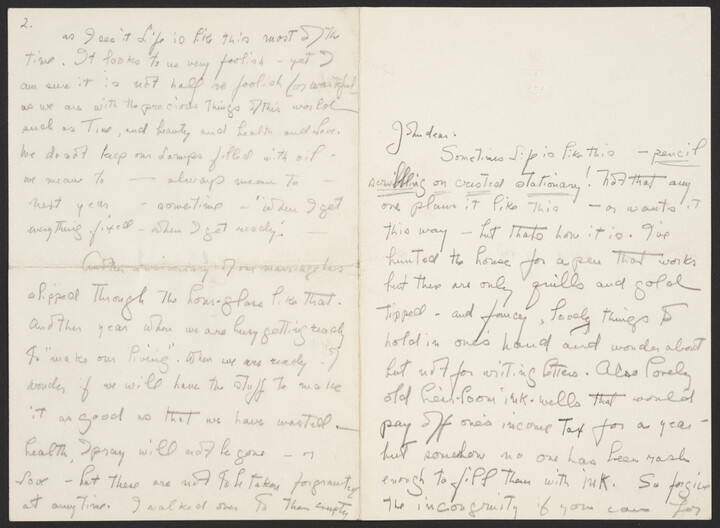 John dear.
Sometimes Life is like this – pencil
scribbling on crested stationary! Not that any
one plans it like this – or wants it
this way – but thats how it is. I've
hunted the house for a pen that works
but there are only quills and gold
tipped – and fancy, lovely things to
hold in one's hand and wonder about
but not for writing letters. Also lovely
old heir-loom ink-wells that would
pay off one's income tax for a year –
but somehow no one has been rash
enough to fill them with ink. So forgive
the incongruity if you can for
2.
as I see it Life is like this most of the
time. It looks to us very foolish – yet I
am sure it is not half so foolish (or wasteful
as we are with the precious things of this world
such as Time, and beauty and health and Love.
We do not keep our Lamps filled with oil –
we mean to – always mean to –
next year – sometime – "When I get
everything fixed – when I get ready." –
Another anniversary of our marriage has
slipped through the hour-glass like that.
Another year when we are busy getting ready
to "make our living". When we are ready I
wonder if we will have the stuff to make
it as good as that we have wasted –
health, I pray will not be gone – or
Love – but these are not to be taken for granted
at any time. I walked over to them empty